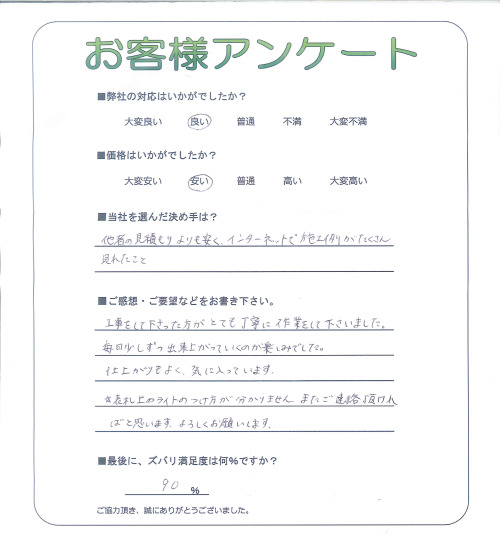 お客様アンケート
■弊社の対応はいかがでしたか？
大変良い 良い 普通 不満 大変不満
■価格はいかがでしたか？
大変安い 安い 普通 高い 大変高い
■当社を選んだ決め手は？
他者の見積もりよりも安く、インターネットで施工例がたくさん
見れたこと
■ご感想・ご要望などをお書き下さい。
工事をして下さった方がとても丁寧に作業をして下さいました。
毎日少しずつ出来上がっていくのが楽しみでした。
仕上がりもよく、気に入っています。
表札上のライトのつけ方が分かりません。またご連絡頂けれ
ばと思います。よろしくお願いします。
■最後に、ズバリ満足度は何％ですか？
90 ％
ご協力頂き、誠にありがとうございました。